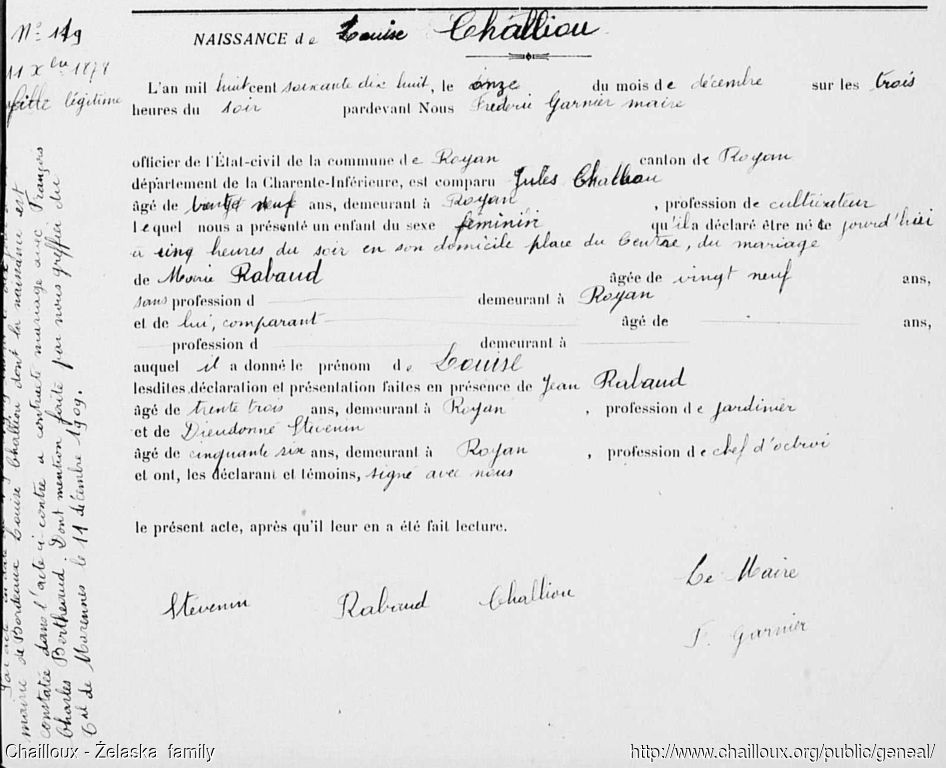 N° 119
11 Xbre 1878
fille légitime
NAISSANCE de Louise Challiou
L'an mil huit cent soixante dix huit, le onze du mois de décembre sur les trois
heures du soir pardevant Nous Frédéric Garnier maire
officier de l'État-civil de la commune de Royan canton de Royan
département de la Charente-Inférieure, est comparu Jules Challiou
âgé de neuf ans, demeurant à Royan, profession de cultivateur
lequel nous a présenté un enfant du sexe féminin qu'il a déclaré être né ce jourd'hui
à cinq heures du soir en son domicile place du Centre, du mariage
de Marie Rabaud âgée de vingt neuf ans,
sans profession d demeurant à Royan
et de lui, comparant âgé de ans,
profession d demeurant à
auquel il a donné le prénom de Louise
lesdites déclaration et présentation faites en présence de Jean Rabaud
âgé de trente trois ans, demeurant à Royan, profession de jardinier
et de Dieudonné Stevenin
âgé de cinquante six ans, demeurant à Royan, profession de chef d'octroi
et ont, les déclarant et témoins, signé avec nous
le présent acte, après qu'il leur en a été fait lecture.
Stevenin Rabaud Challiou Le Maire
F. Garnier
mairie de Bordeaux Louise Challiou dont la naissance est
constatée dans l'acte ci contre a contracté mariage avec François
Charles Bertheaud. Dont mention faite par nous greffier du
Tal de Marennes le 11 décembre 1909.
Chailloux - Želaska family
http://www.chailloux.org/public/geneal/